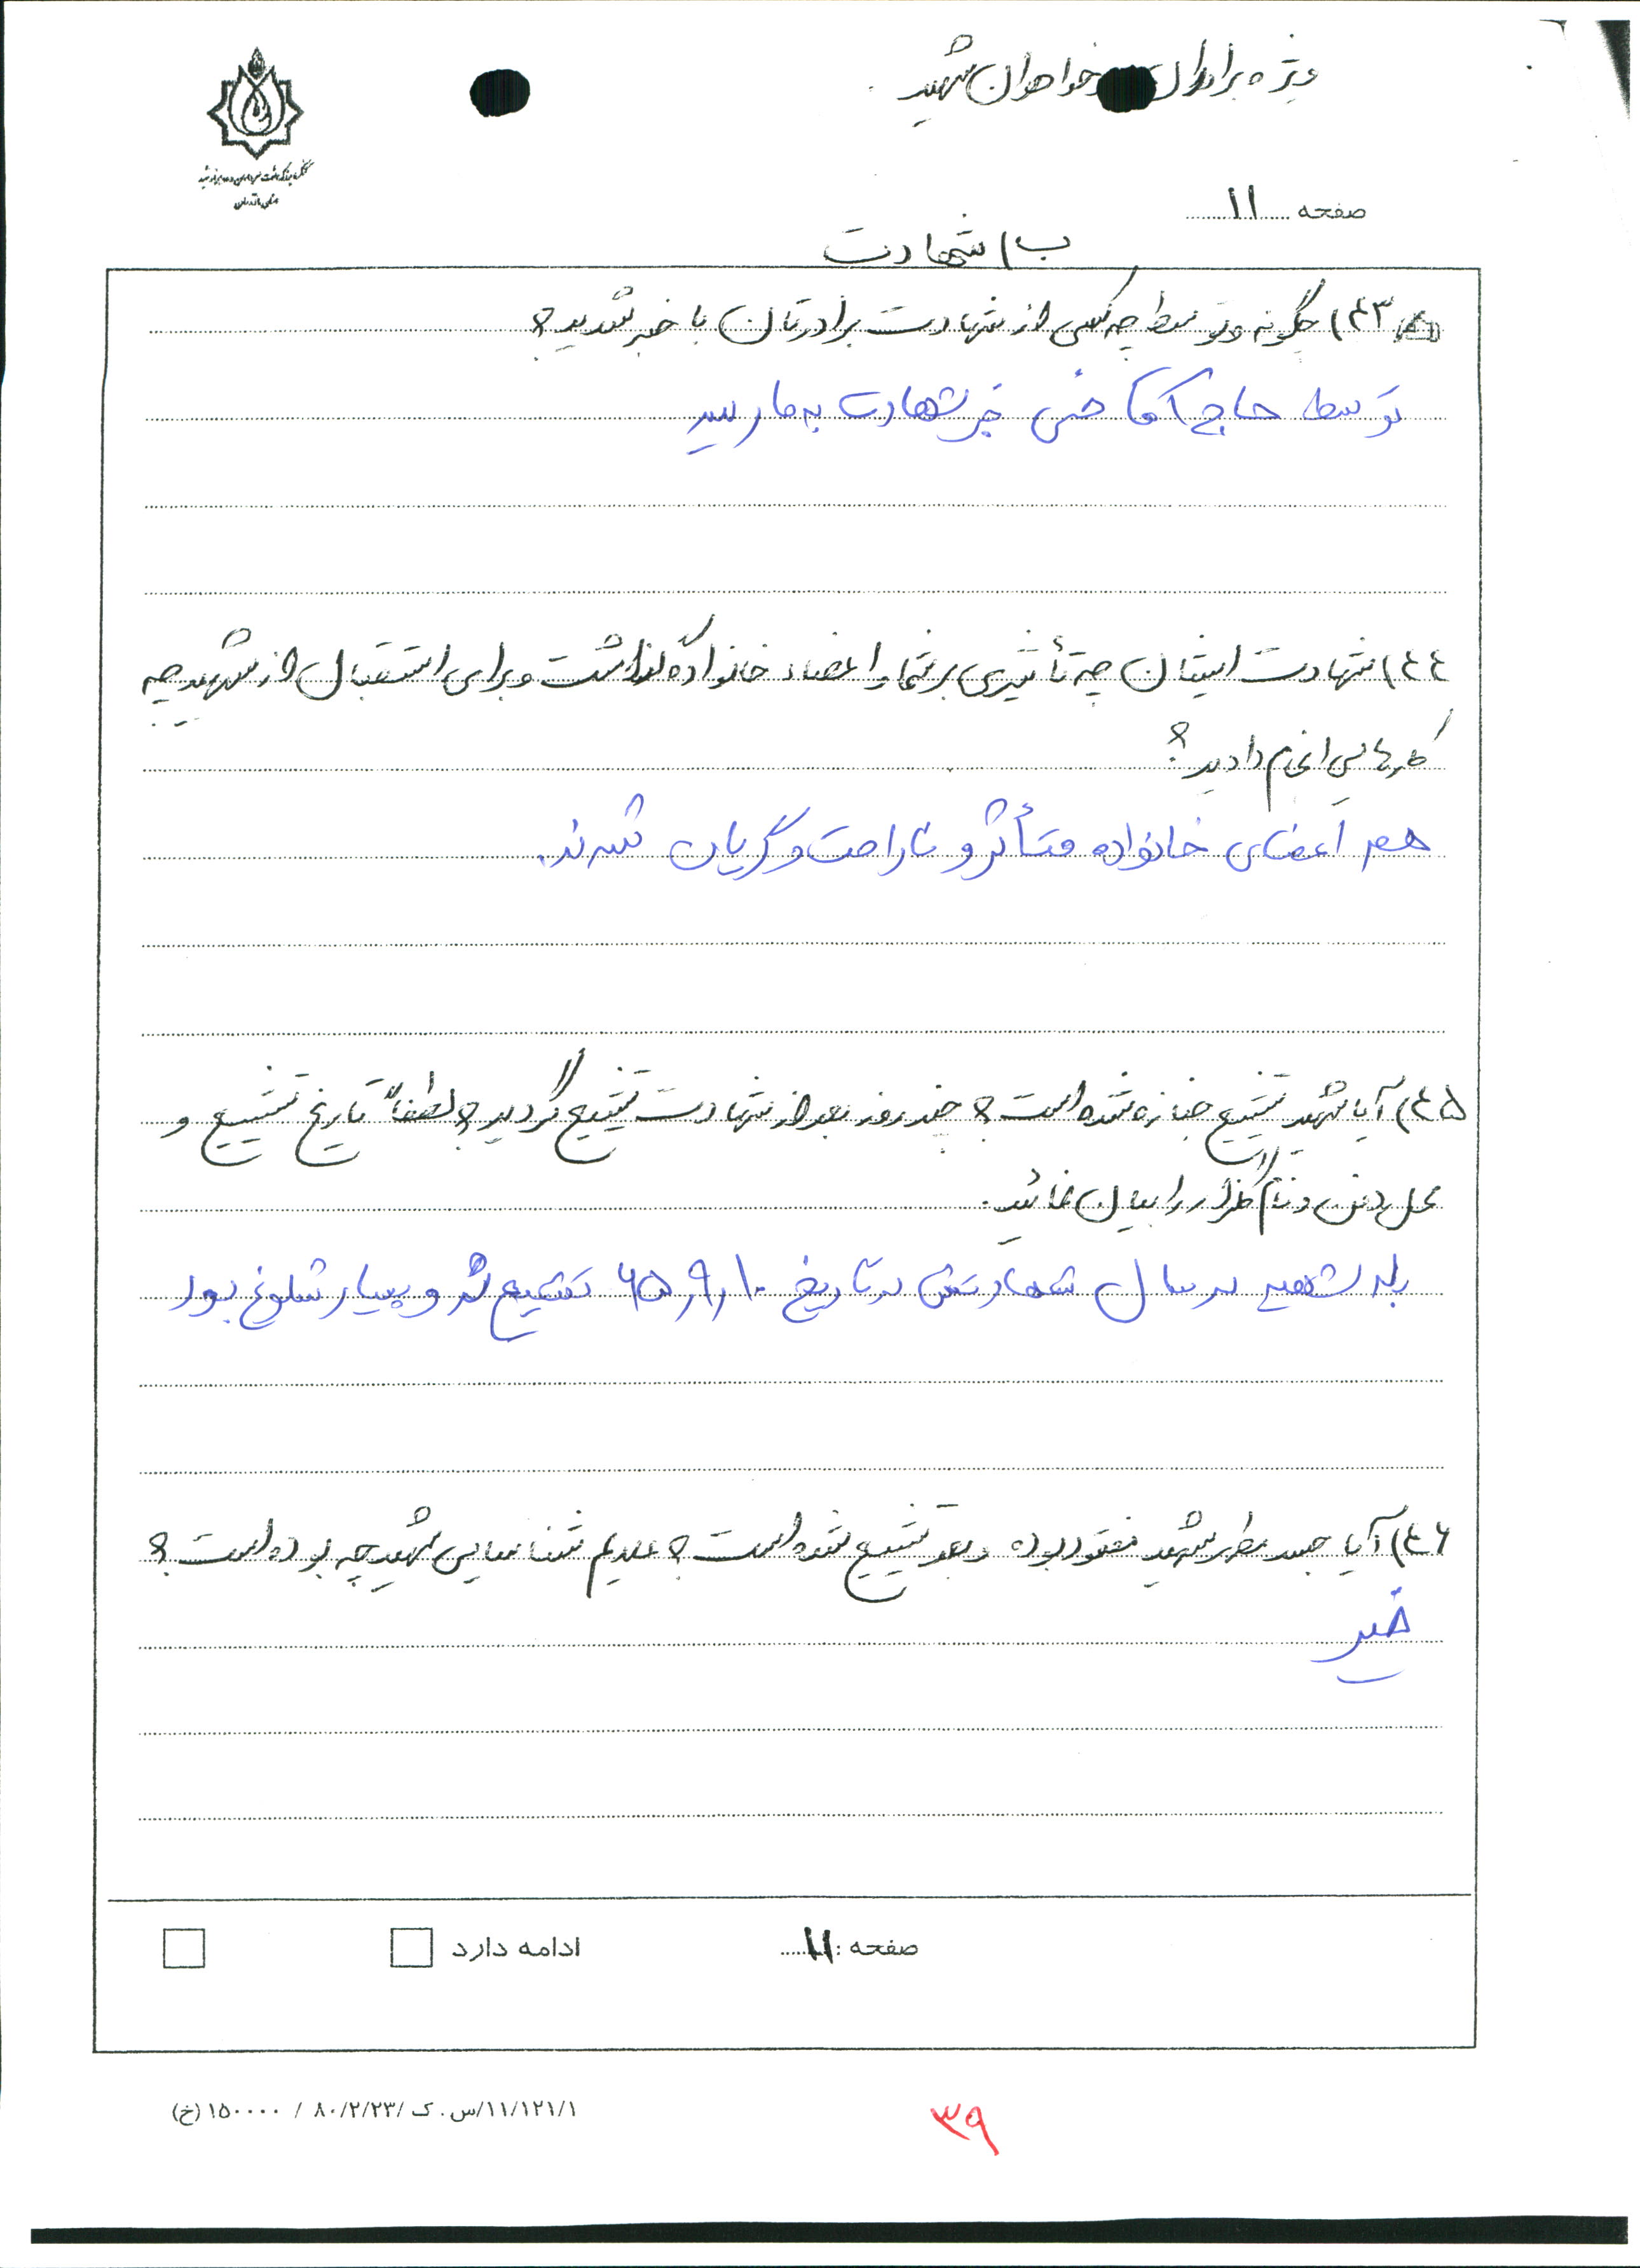 ویژه برادران و خواهران شهید
صفحه ۱۱
ب) شهادت
۴۳) چگونه و توسط چه کسی از شهادت برادرتان با خبر شدید؟
توسط حاج آقا خبر شهادت به ما رسید
۴۴) شهادت ایشان چه تأثیری بر شما و اعضاء خانواده گذاشت و برای استقبال از شهید چه
کارهایی انجام دادید؟
همه اعضای خانواده متأثر و ناراحت و گریان شدند.
۴۵) آیا شهید تشییع جنازه شده است؟ چند روز بعد از شهادت تشییع گردید؟ لطفاً تاریخ تشییع و
محل دفن و نام گلزار را بیان نمائید.
بله شهید در سال شهادتش در تاریخ ۶۵٫۹٫۱۰ تشییع شد و بسیار شلوغ بود
۴۶) آیا جسد مطهر شهید مفقود بوده و بعد تشییع شده است؟ علایم شناسایی شهید چه بوده است؟
خیر
صفحه: ۱۱ ادامه دارد
۱۱/۱۲۱/۱/س.ک/۸۰/۲/۲۳ / ۱۵۰۰۰۰ (خ)
۳۹